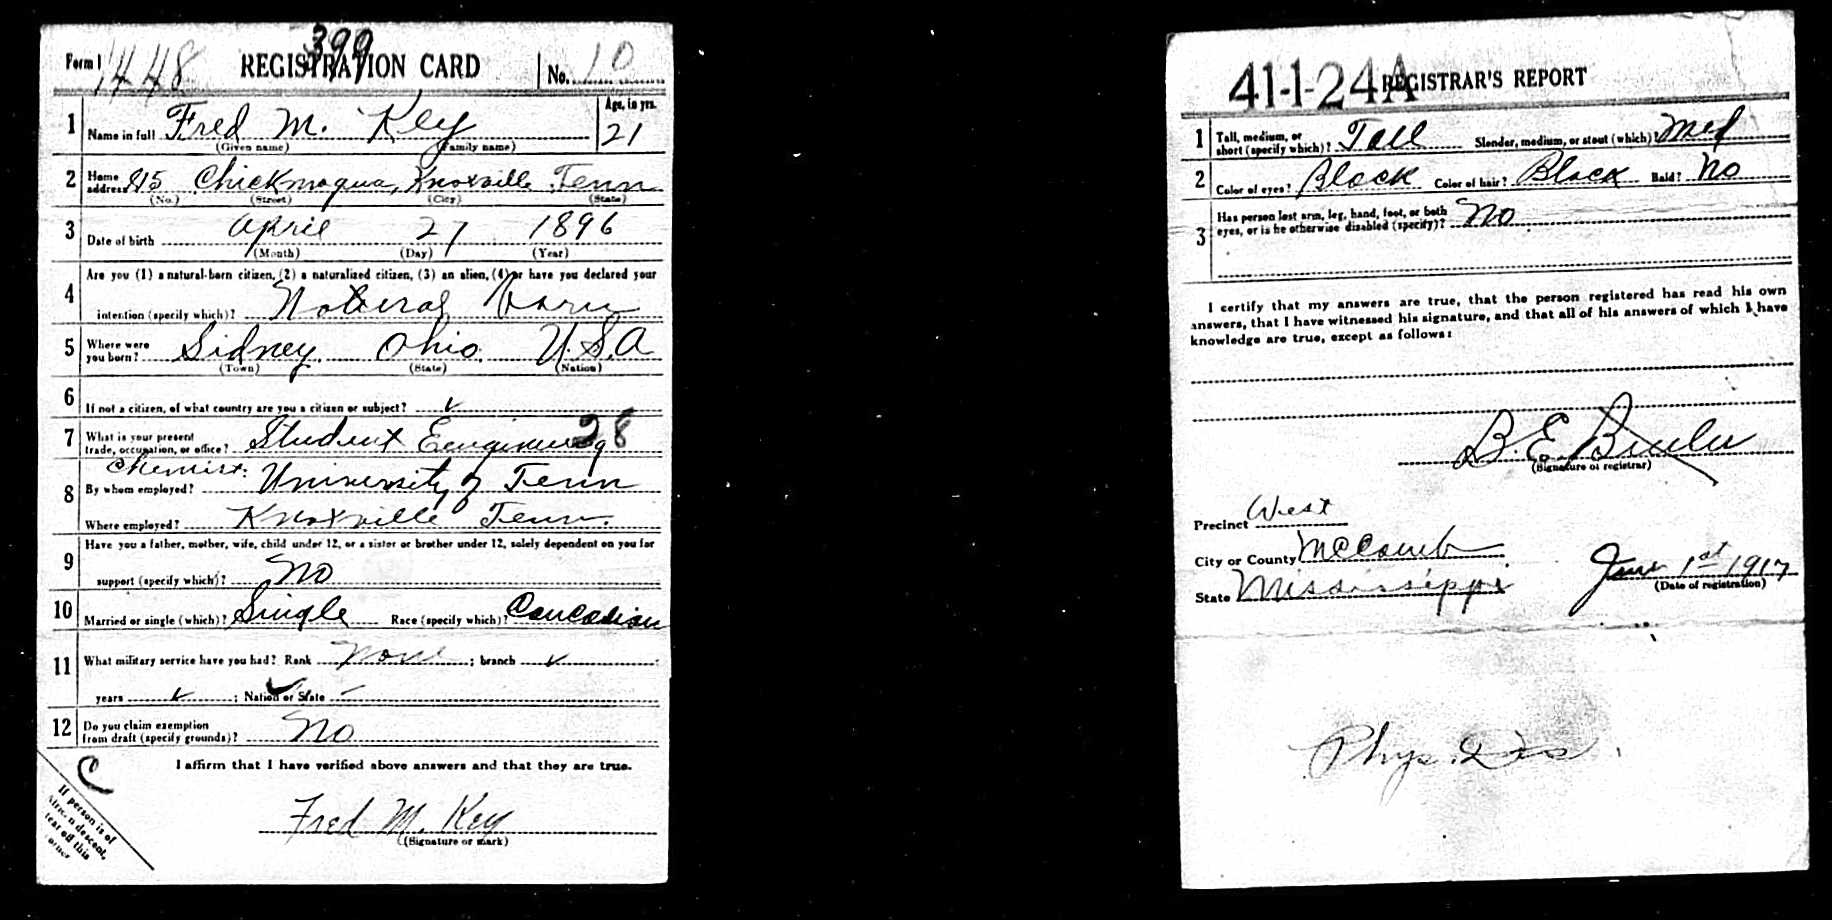 Form 1 1448 REGISTRATION CARD 399 No. 10
1 Name in full Fred M. Key Age, in yrs. 21
(Given name) (Family name)
2 Home address 815 Chickmogua, Knoxville Tenn
(No.) (Street) (City) (State)
3 Date of birth April 27 1896
(Month) (Day) (Year)
4 Are you (1) a natural-born citizen, (2) a naturalized citizen, (3) an alien, (4) or have you declared your
intention (specify which)? Natural Born
5 Where were you born? Sidney Ohio U.S.A
(Town) (State) (Nation)
6 If not a citizen, of what country are you a citizen or subject? ✓
7 What is your present
trade, occupation, or office? Student Eengineering 28
Chemist
8 By whom employed? University of Tenn
Where employed? Knoxville Tenn.
9 Have you a father, mother, wife, child under 12, or a sister or brother under 12, solely dependent on you for
support (specify which)? No
10 Married or single (which)? Single Race (specify which)? Caucasian
11 What military service have you had? Rank None ; branch ✓
years ✓ ; Nation or State
12 Do you claim exemption
from draft (specify grounds)? No
I affirm that I have verified above answers and that they are true.
C
If person is of
African descent,
tear off this
corner
Fred M. Key
(Signature or mark)
41-1-24A REGISTRAR'S REPORT
1 Tall, medium, or
short (specify which)? Tall Slender, medium, or stout (which)? Med
2 Color of eyes? Black Color of hair? Black Bald? No
3 Has person lost arm, leg, hand, foot, or both
eyes, or is he otherwise disabled (specify)? No
I certify that my answers are true, that the person registered has read his own
answers, that I have witnessed his signature, and that all of his answers of which I have
knowledge are true, except as follows:
B. E.
(Signature of registrar)
Precinct West
City or County McComb
State Mississippi
June 1st 1917
(Date of registration)
Phys. Dis.